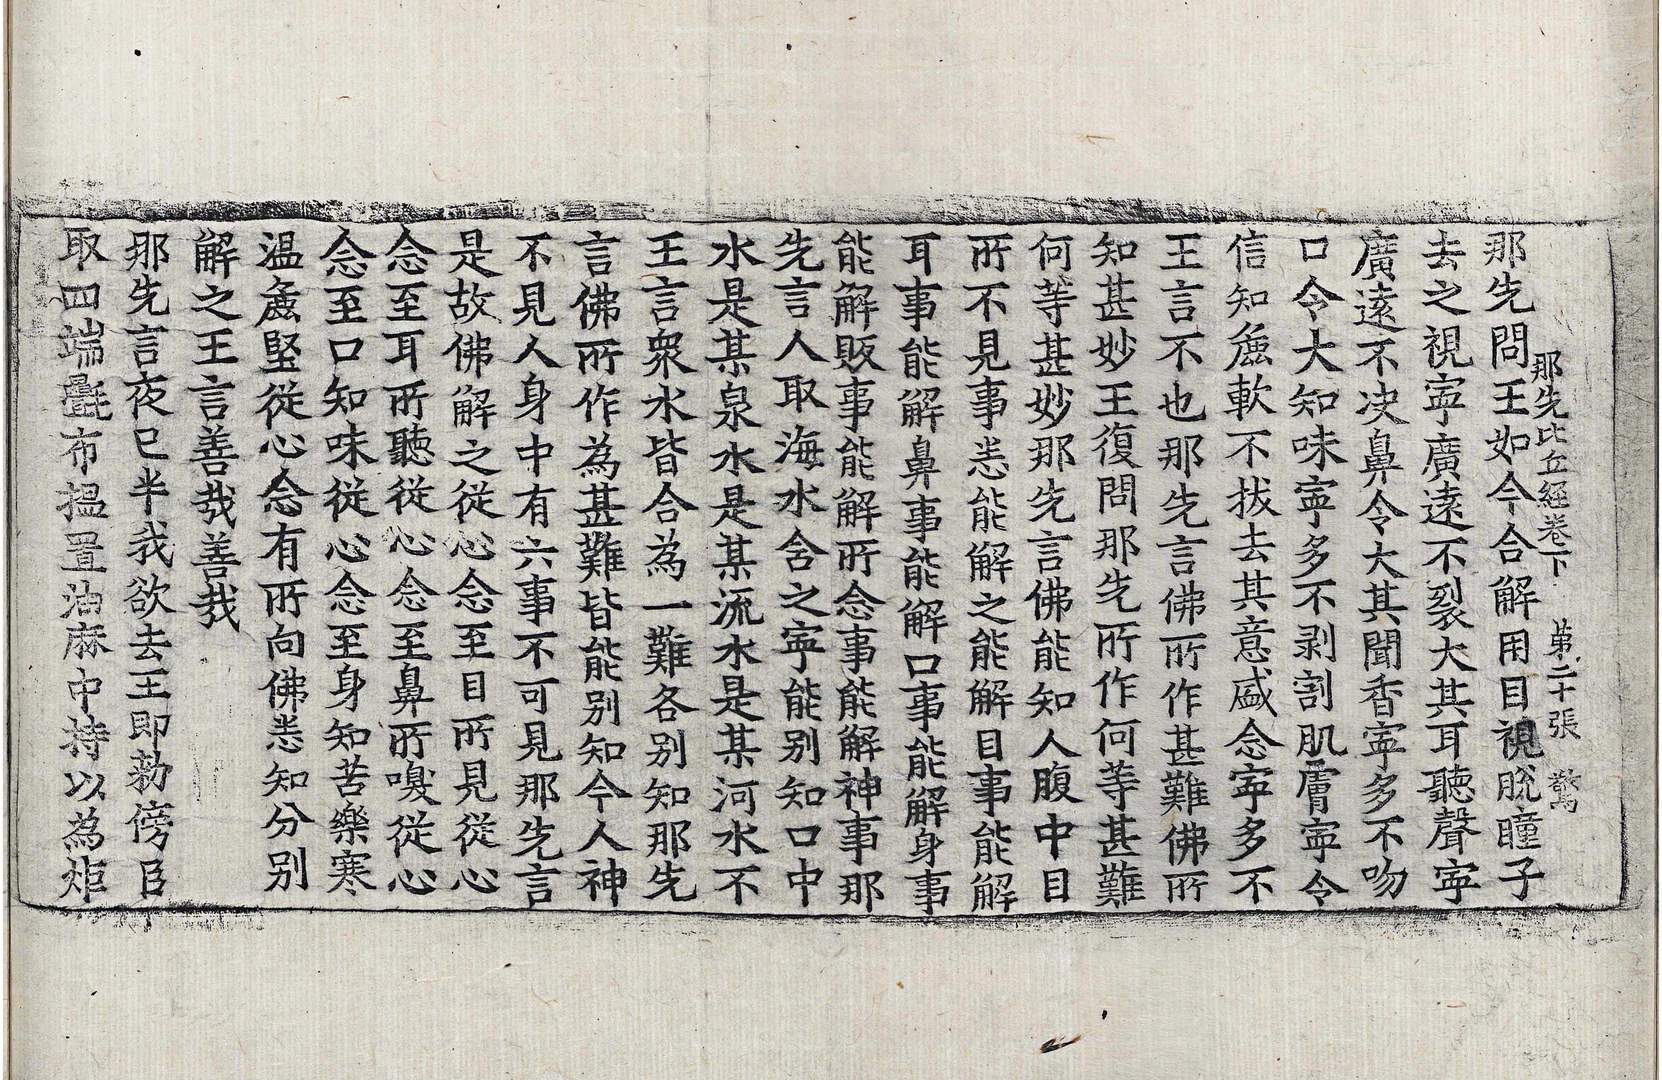 那先比丘經卷下 第二十張 驚
那先問王如今合解用目視脫瞳子
去之視寧廣遠不裂大其耳聽聲寧
廣遠不决鼻令大其聞香寧多不吻
口令大知味寧多不剥割肌膚寧令
信知麁軟不拔去其意盛念寧多不
王言不也那先言佛所作甚難佛所
知甚妙王復問那先所作何等甚難
何等甚妙那先言佛能知人腹中目
所不見事悉能解之能解目事能解
耳事能解鼻事能解口事能解身事
能解販事能解所念事能解神事那
先言人取海水含之寧能别知口中
水是某泉水是某流水是某河水不
王言衆水皆合為一難各别知那先
言佛所作為甚難皆能别知今人神
不見人身中有六事不可見那先言
是故佛解之從心念至目所見從心
念至耳所聽從心念至鼻所嗅從心
念至口知味從心念至身知苦樂寒
温麁堅從心念有所向佛悉知分别
解之王言善哉善哉
那先言夜已半我欲去王即勑傍臣
取四端㲲布揾置油麻中持以為炬